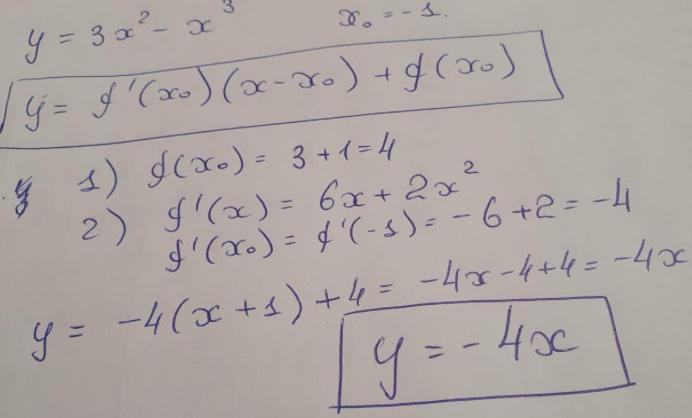 y = 3x² - x³ x₀ = -1.
y = f'(x₀)(x-x₀) + f(x₀)
1) f(x₀) = 3+1=4
2) f'(x) = 6x+2x²
f'(x₀) = f'(-1) = -6+2 = -4
y = -4(x+1)+4 = -4x-4+4 = -4x
y = -4x